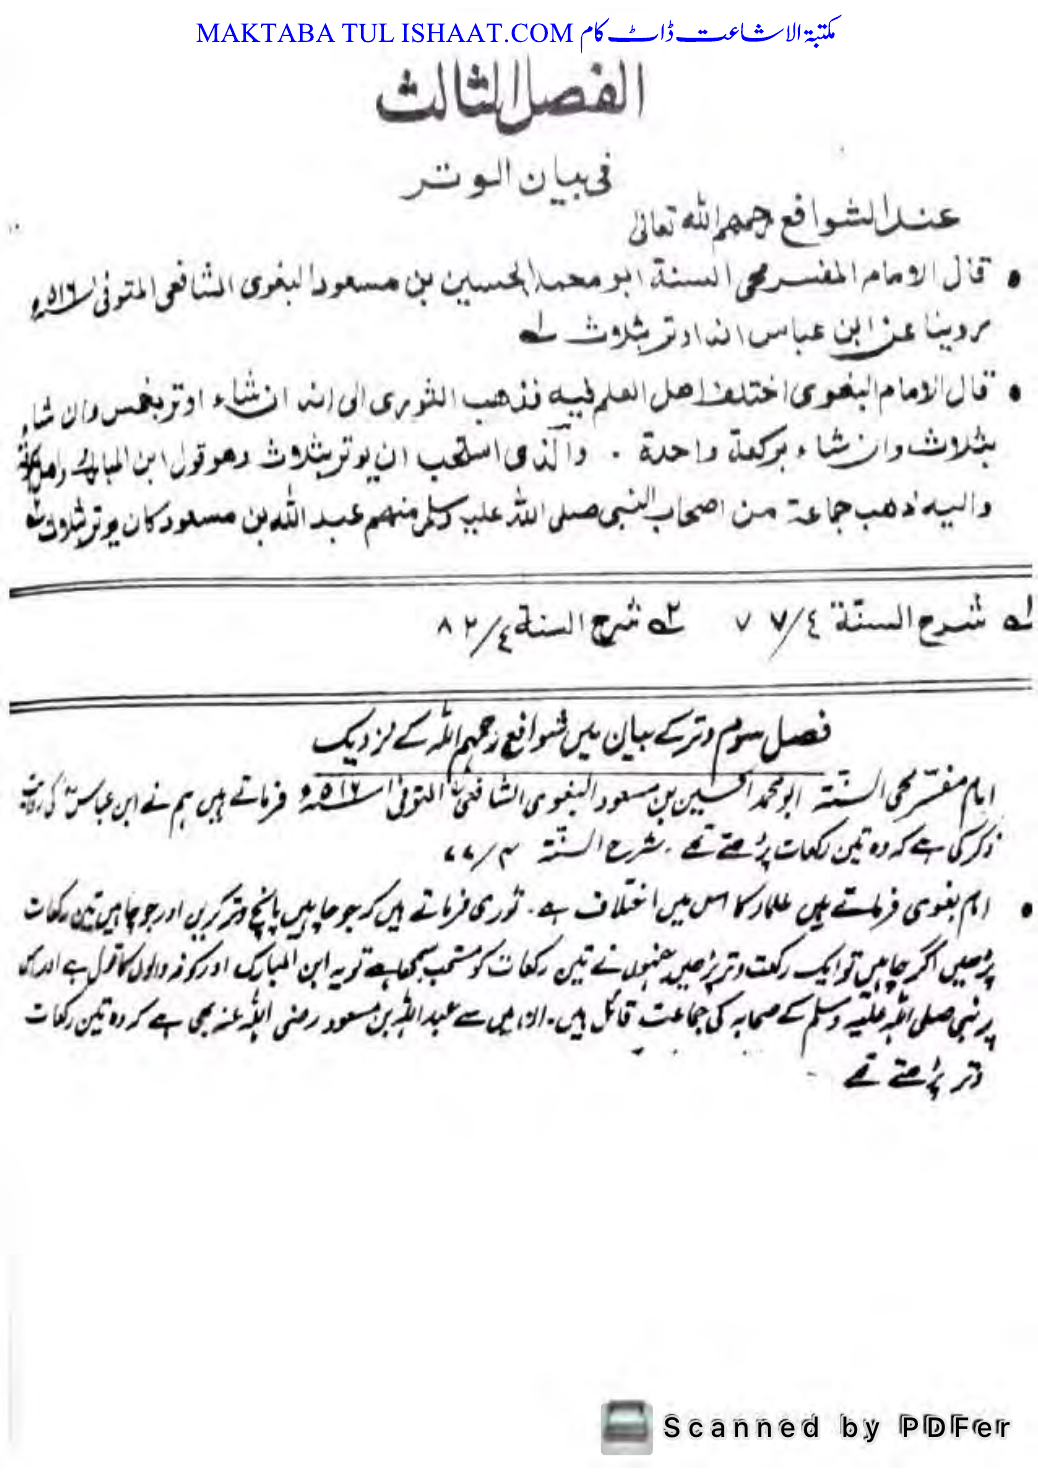 MAKTABA TUL ISHAAT.COM مکتبۃ الاشاعت ڈاٹ کام
الفصل الثالث
فی بیان الوتر
عند الشوافع رحمہم اللہ تعالی
• قال الامام المفسر محی السنۃ ابو محمد الحسین بن مسعود البغوی الشافعی المتوفی ۵۱۶ھ
روینا عن ابن عباس انہ اوتر بثلاث لے
• قال الامام البغوی اختلف اهل العلم فیه فذهب الثوری الی انه ان شاء اوتر بخمس وان شاء
بثلاث وان شاء برکعة واحدة . والذی استحب ان یوتر بثلاث وهو قول ابن المبارک واهل الکوفة
والیه ذهب جماعة من اصحاب النبی صلی اللہ علیہ وسلم منهم عبد اللہ بن مسعود کان یوتر بثلاث
۱ے شرح السنّة ٤/٧٧ ۲ے شرح السنة ٤/٨٢
فصل سوم وتر کے بیان میں شوافع رحمہم اللہ کے نزدیک
امام مفسّر محی السنّتہ ابو محمد الحسین بن مسعود البغوی الشافعیؒ المتوفی ۵۱۶ھ فرماتے ہیں ہم نے ابن عباسؓ کی روایت
ذکر کی ہے کہ وہ تین رکعات پڑھتے تھے ۔ شرح السنّتہ ۴/۷۷
• امام بغوی فرماتے ہیں علماء کا اس میں اختلاف ہے ۔ ثوری فرماتے ہیں کہ جو چاہیں پانچ وتر کریں اور جو چاہیں تین رکعات
پڑھیں اگر چاہیں تو ایک رکعت وتر پڑھیں جنہوں نے تین رکعات کو مستحب سمجھا ہے تو یہ ابن المبارک اور کوفہ والوں کا قول ہے اور اسی
پر نبی صلی اللہ علیہ وسلم کے صحابہ کی جماعت قائل ہیں ۔ ان میں سے عبد اللہ بن مسعود رضی اللہ عنہ بھی ہے کہ وہ تین رکعات
وتر پڑھتے تھے
Scanned by PDFer